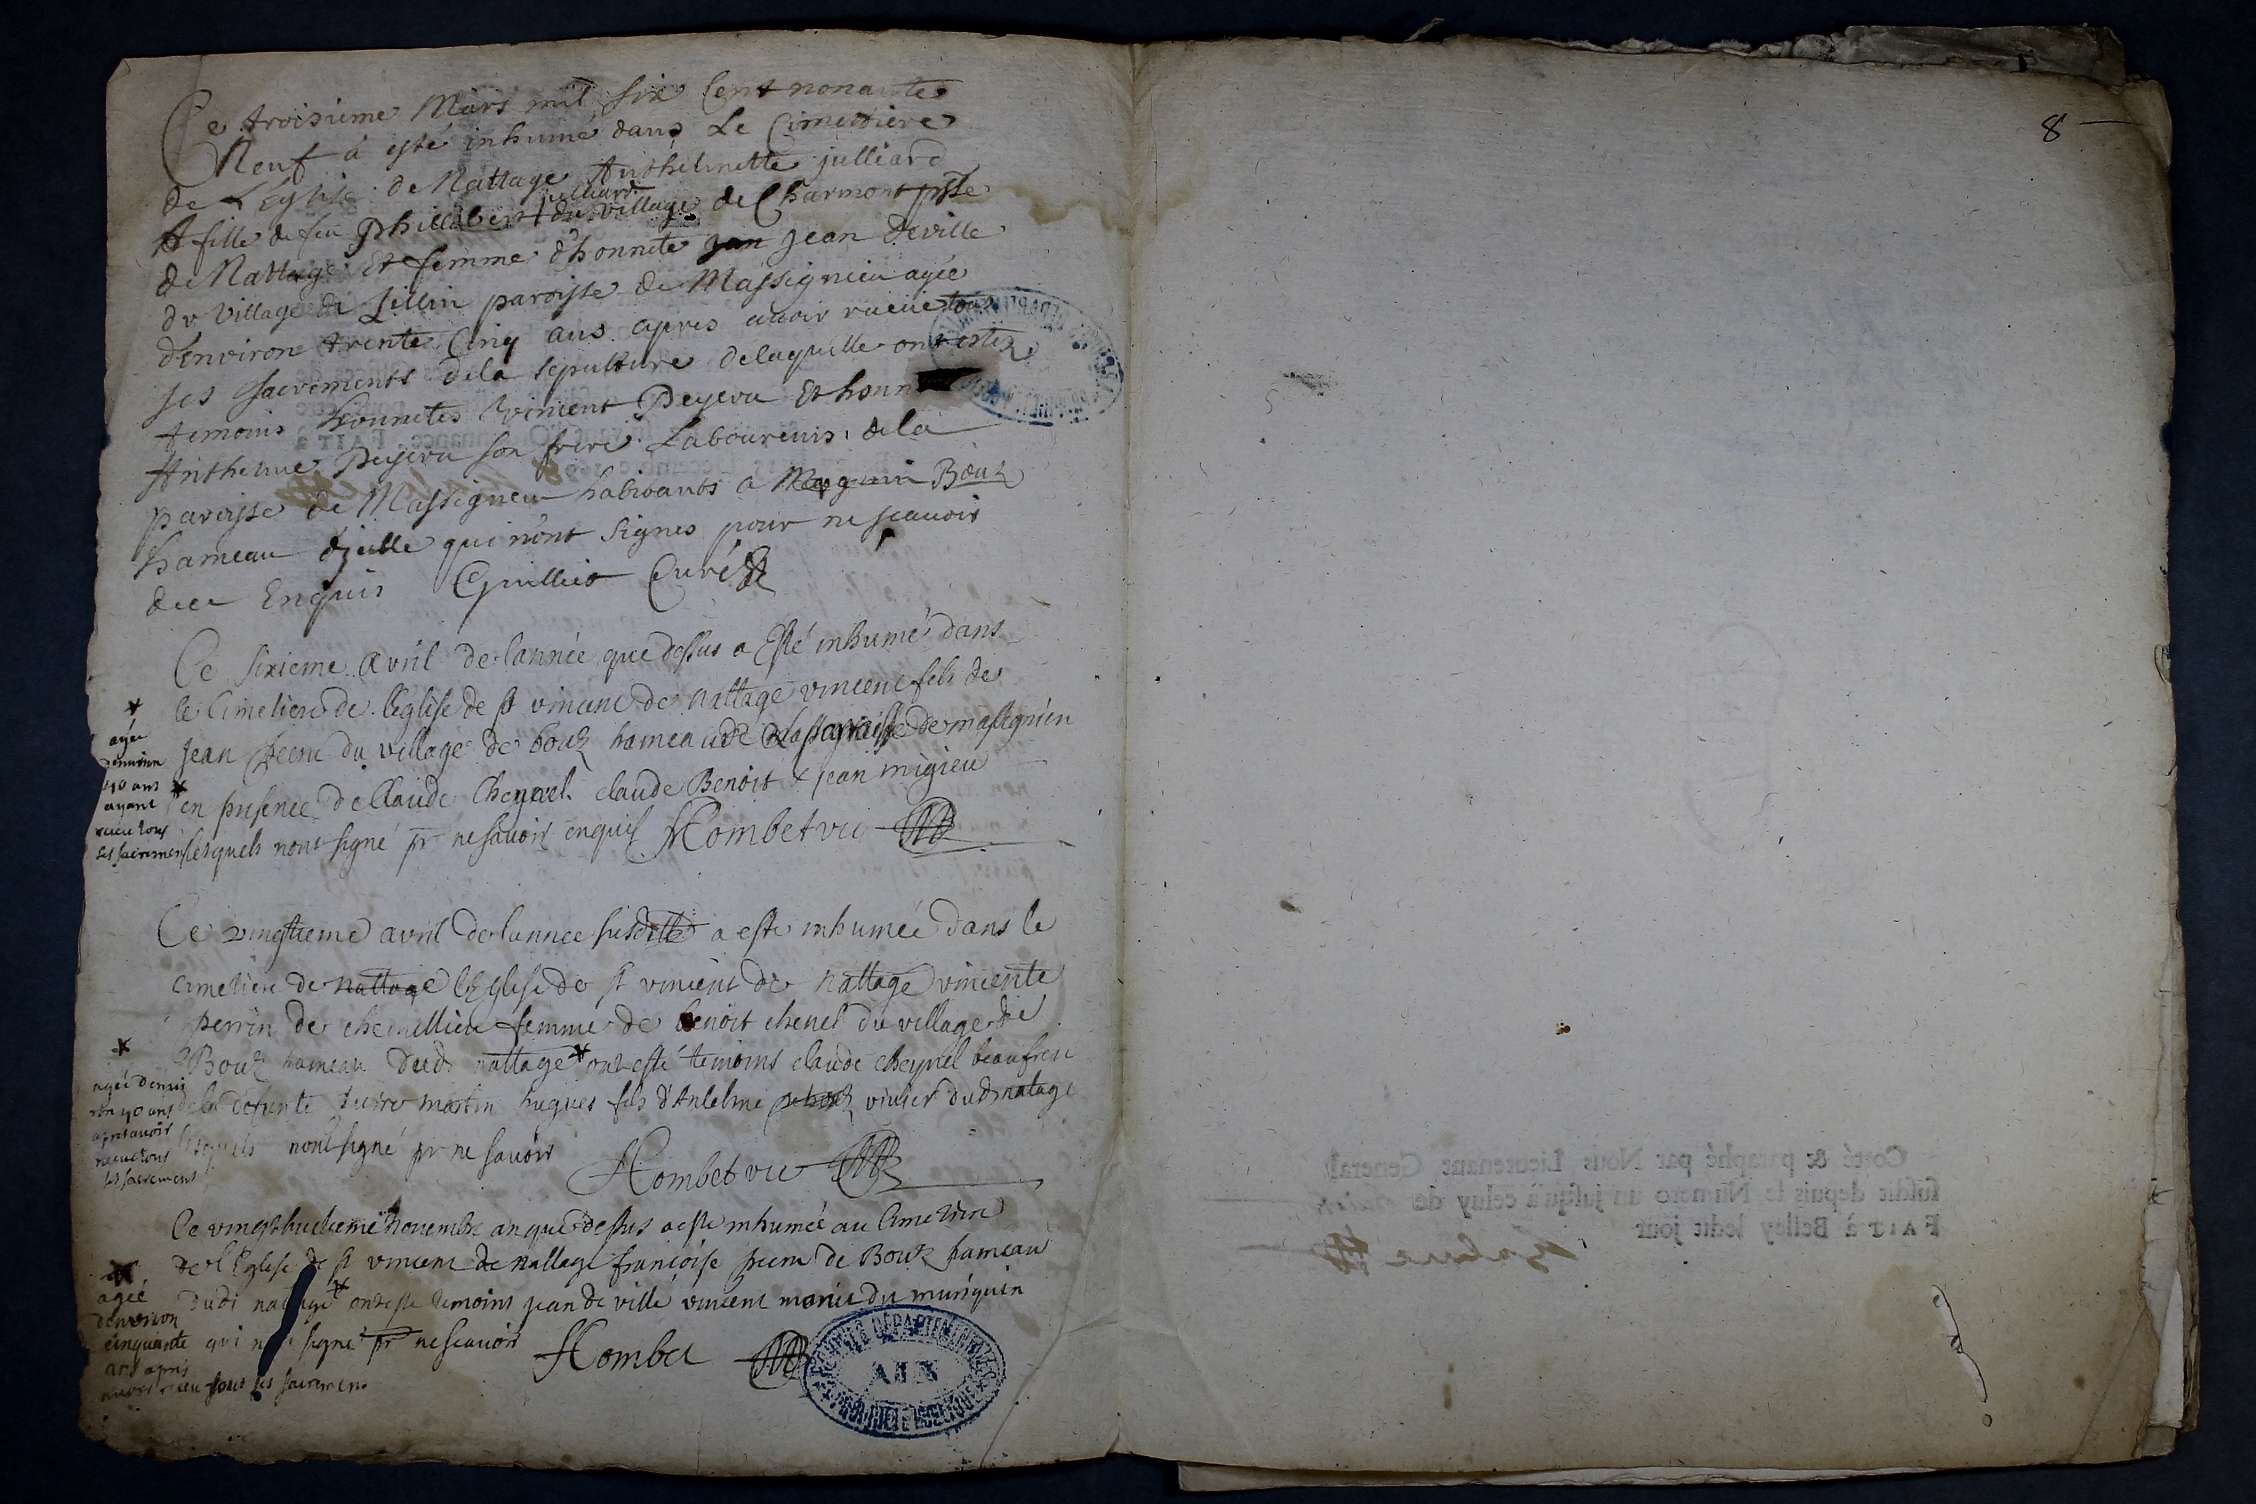 Ce troisieme Mars mil six Cent nonante
Neuf à esté inhumé dans Le Cimettiere
de L'Eglise de Nattage Anthelmette julliard
julliard
fille de feu Phillibert du village de Charmont psse
de Nattage Et femme d'honnete jan jean Deville
du Village de Lillin paroisse de Massignieu agée
d'environ trente Cinq ans apres avoir receu tous
ses sacrements dela sepulture delaquelle ont estez
temoins honnetes Vincent Peyeru Et honn
Anthelme Peyeru son frere Laboureurs dela
paroisse de Massigneu habitants a Bouz
hameau d'jcelle qui n'ont signes pour ne scavoir
dece Enquis Guilliot Curé
Ce sixieme avril de l'année que dessus a Esté inhumé dans
le Cimetiere de l'eglise de st vincent de nattage vincent fils de
jean peeru du village de bouz hameau de la paroisse de massignieu
en presence de Claude Cheynel claude Benoit & jean migieu
lesquels nont signé pr ne savoir enquis Hombet vic
agée
denviron
40 ans
ayant
receu tous
ses sacremens
Ce vingtieme avril de lannee susditte a este inhumée dans le
cimetiere de nattage l'Eglise de st vincent de nattage vincente
perrin de chemillieu femme de benoit chenel du village de
Bouz hameau dud nattage ont esté temoins claude cheynel beaufrere
de la defunte pierre martin hugues fils d'Antelme vivier dud natage
lesquels nont signé pr ne savoir
Hombet vic
agée denvi
ron 40 ans
apres avoir
receu tous
ses sacremens
Ce vingthuictieme novembre an que dessus a este inhumée au Cimetiere
de l'Eglise de st vincent de nattage françoise peeru de Bouz hameau
dudt nattage ont este temoins jean de ville vincent marie du
qui signé pr ne scavoir Hombet
agée
denviron
cinquante
ans apres
avoir receu tous ses sacremens
ARCHIVES DÉPARTEMENTALES
AIN
8
Cotté & paraphé par Nous Lieutenant General
susdit depuis le Numero un jusqu'à celuy de
FAIT à Belley ledit jour